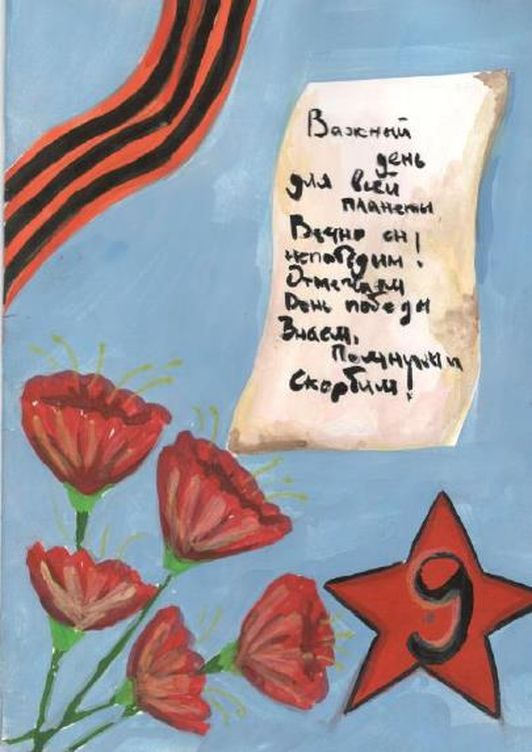 Важный
день
для всей
планеты
Вечно он
непобедим!
Отмечаем
День победы
Знаем,
Помним и
Скорбим!
9